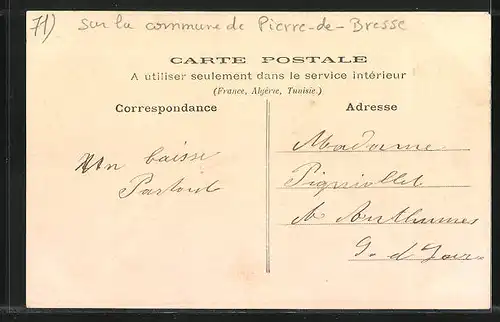 71) sur la commune de Pierre-de-Bresse
CARTE POSTALE
A utiliser seulement dans le service intérieur
(France, Algérie, Tunisie.)
Correspondance
Adresse
Un baisse
Partout
Madame
A Authumes
S. et Loire